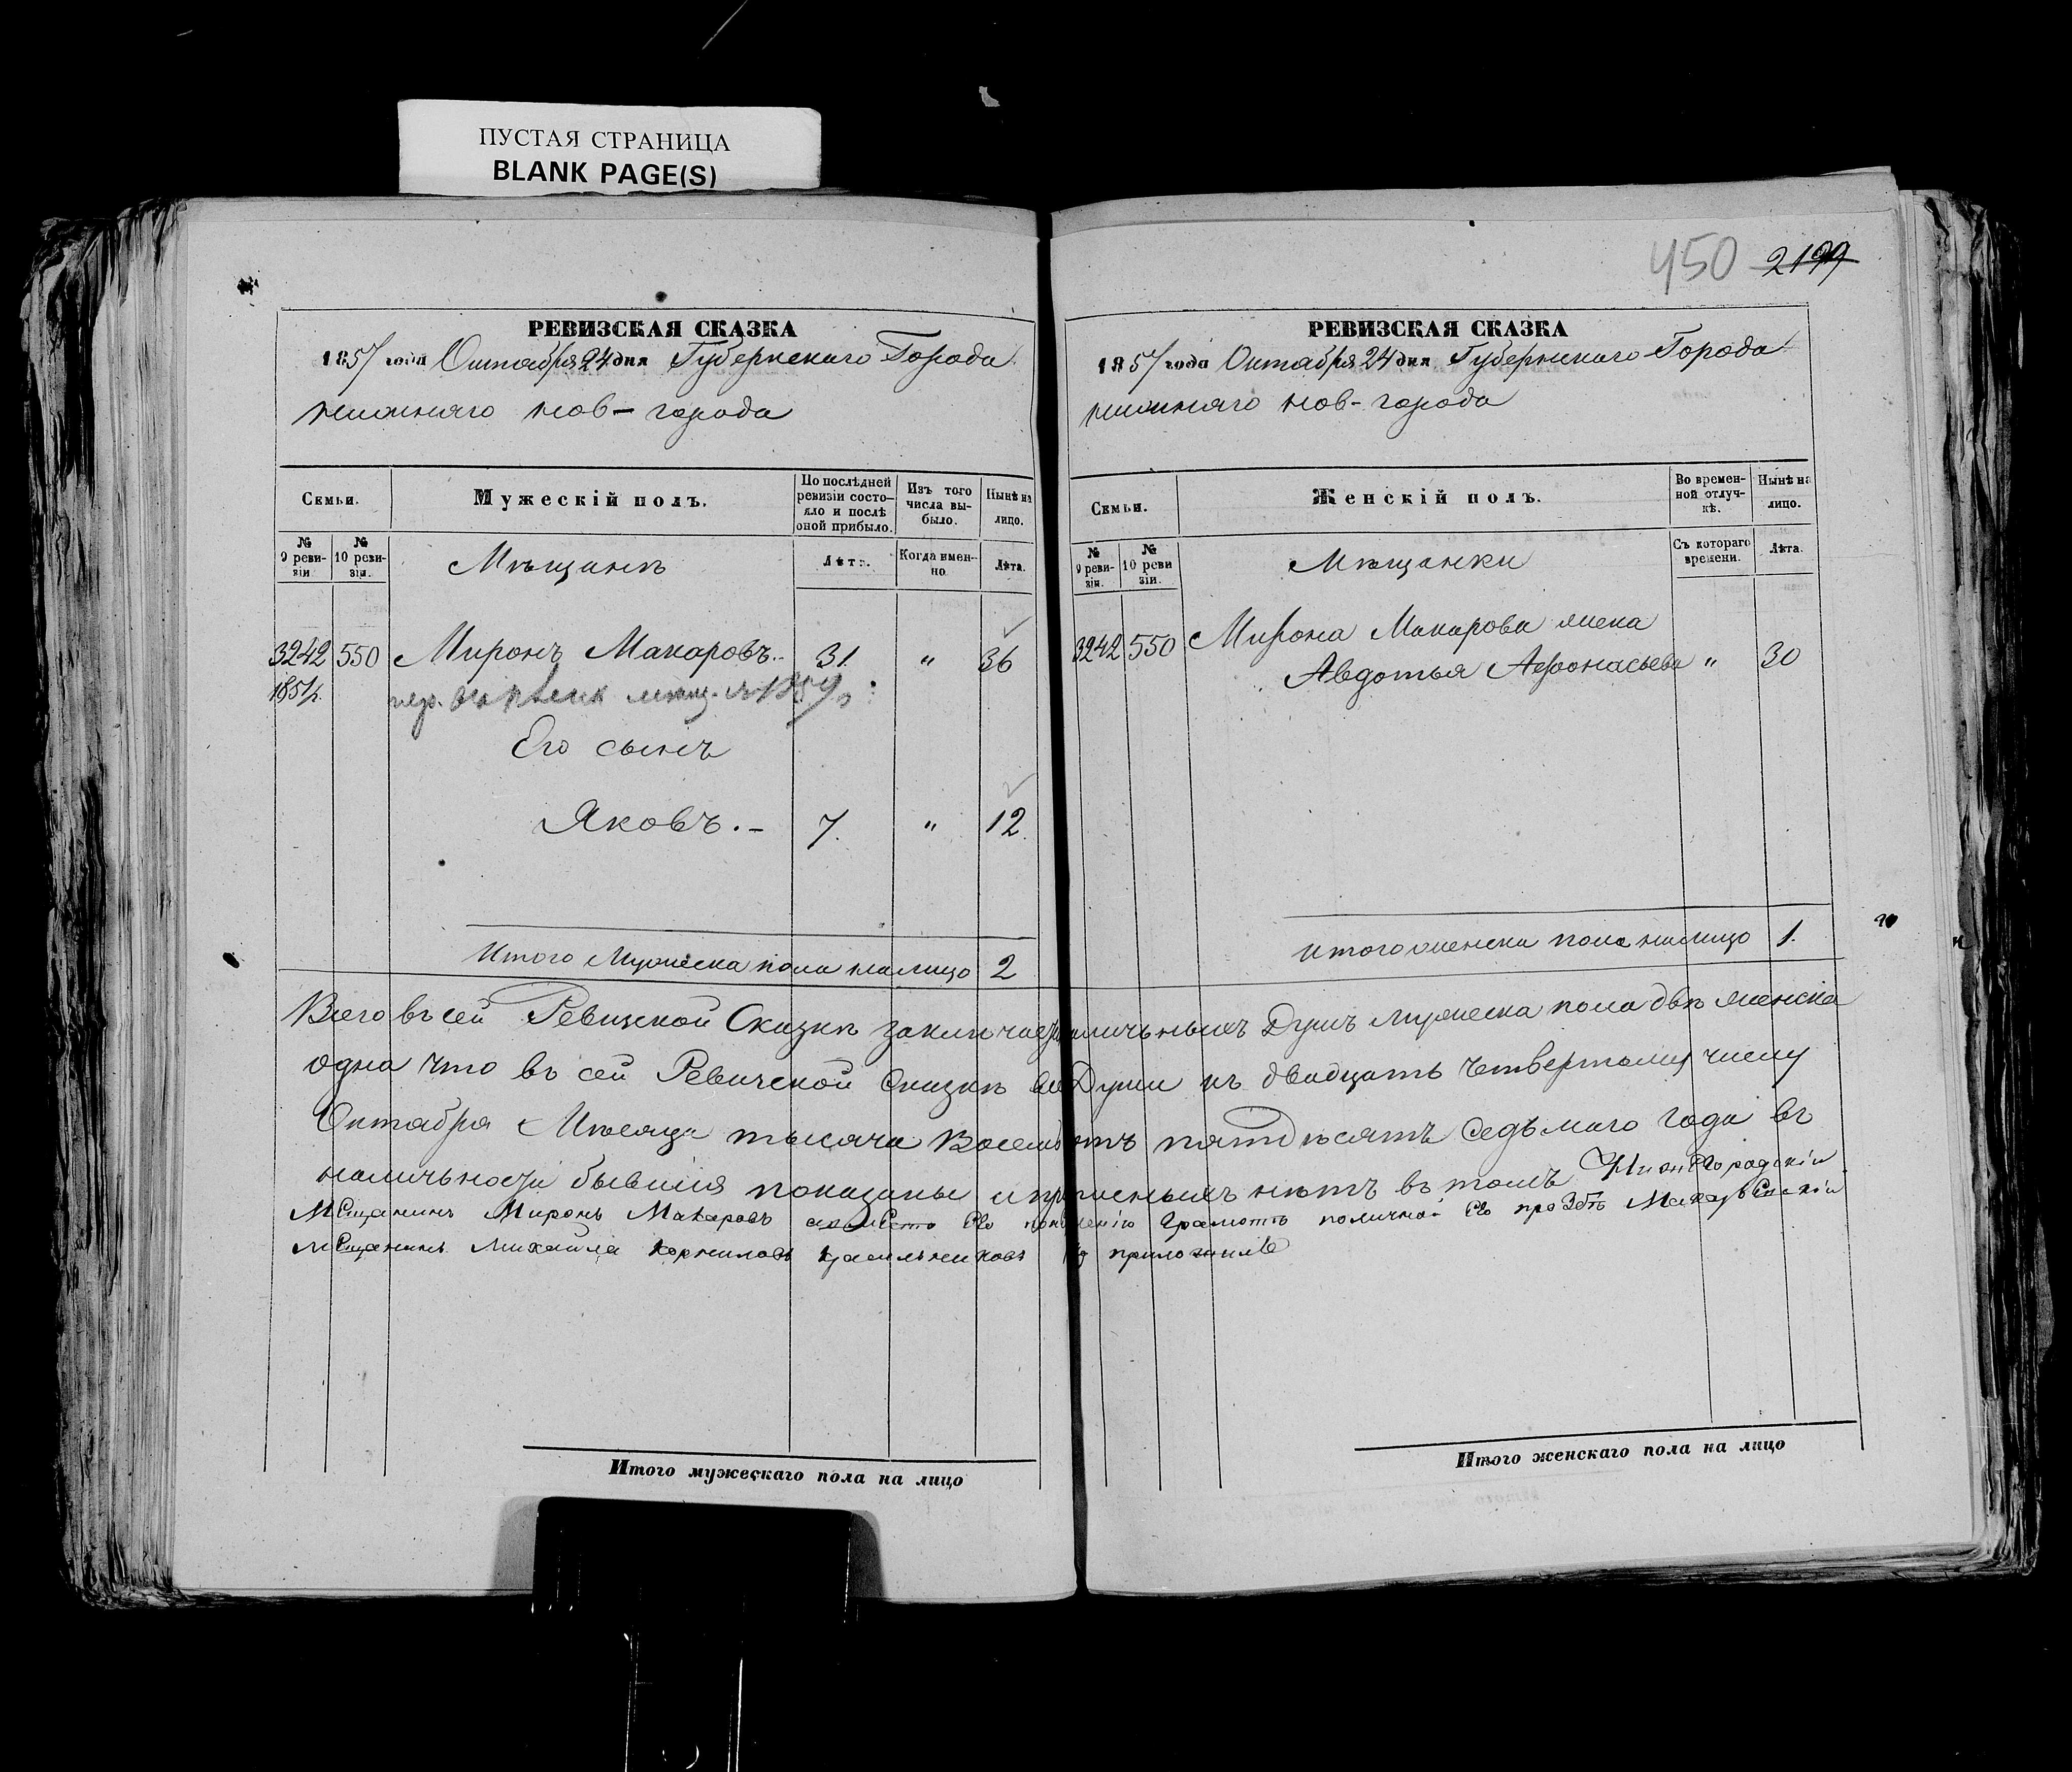 ПУСТАЯ СТРАНИЦА
BLANK PAGE(S)
450 2199
РЕВИЗСКАЯ СКАЗКА
1857 года Октября 24 дня Губернскаго Города
нижняго нов-города
Семьи.
Мужескій полъ.
По послѣдней ревизіи состояло и послѣ оной прибыло.
Изъ того числа выбыло.
Нынѣ на лицо.
№ 9 ревизіи
№ 10 ревизіи.
Мѣщанѣ
Лѣта.
Когда именно
Лѣта.
3242 550 Миронъ Макаровъ. 31. " 36
1851/2.
Его сынъ
Яковъ. 7. " 12.
Итого Мужеска пола налицо 2
РЕВИЗСКАЯ СКАЗКА
1857 года Октября 24 дня Губернскаго Города
нижняго нов-города
Семьи.
Женскій полъ.
Во временной отлучкѣ.
Нынѣ на лицо.
№ 9 ревизіи.
№ 10 ревизіи.
Мѣщанки
Съ котораго времени.
Лѣта.
3242 550 Мирона Макарова жена
Авдотья Афонасьева " 30
Итого женска пола налицо 1.
Всего въ сей Ревизской Сказкѣ Душъ мужеска пола двѣ женска
одна что въ сей Ревизской Сказкѣ все Души къ двадцать четвертому числу
Октября Мѣсяца тысяча Восемьсотъ пятдѣсятъ Седьмаго года въ
наличьности бывшия показаны и нѣтъ въ томъ
Мещанинъ Миронъ Макаровъ его прозбѣ
Мещанинъ Михайла Корниловъ Красильниковъ приложилъ
Итого мужескаго пола на лицо
Итого женскаго пола на лицо